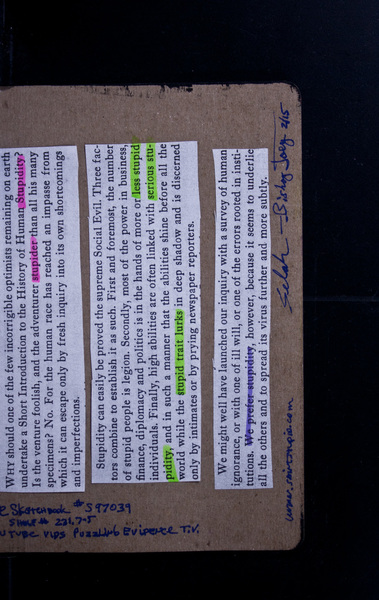 WHY should one of the few incorrigible optimists remaining on earth
undertake a Short Introduction to the History of Human Stupidity?
Is the venture foolish, and the adventurer stupider than all his many
specimens? No. For the human race has reached an impasse from
which it can escape only by fresh inquiry into its own shortcomings
and imperfections.
Stupidity can easily be proved the supreme Social Evil. Three fac-
tors combine to establish it as such. First and foremost, the number
of stupid people is legion. Secondly, most of the power in business,
finance, diplomacy and politics is in the hands of more or less stupid
individuals. Finally, high abilities are often linked with serious stu-
pidity, and in such a manner that the abilities shine before all the
world while the stupid trait lurks in deep shadow and is discerned
only by intimates or by prying newspaper reporters.
We might well have launched our inquiry with a survey of human
ignorance, or with one of ill will, or one of the errors rooted in insti-
tutions. We prefer stupidity, however, because it seems to underlie
all the others and to spread its virus further and more subtly.
2/15
Sketchbook # S97039
231.7-5
Vids Puzzling Evidence T.V.